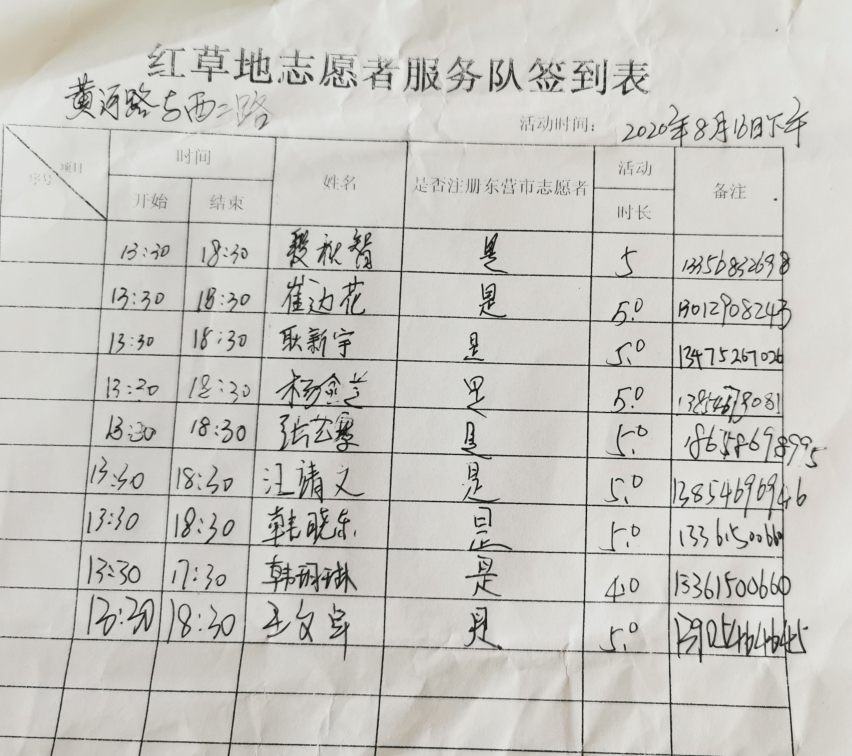 红草地志愿者服务队签到表
黄河路与西二路
活动时间: 2020年8月16日下午
项目 时间 姓名 是否注册东营市志愿者 活动 备注
序号 开始 结束 时长
13:30 18:30 段秋智 是 5 13356832698
13:30 18:30 崔边花 是 5.0 13012908243
13:30 18:30 耿新宇 是 5.0 13475267026
13:30 18:30 杨金芝 是 5.0
13:30 18:30 张艺 是 5.0 18658698995
13:30 18:30 汪靖文 是 5.0 13854696946
13:30 18:30 韩晓东 是 5.0 13361500660
13:30 17:30 韩珂琳 是 4.0 13361500660
13:30 18:30 王文军 是 5.0 13905464645